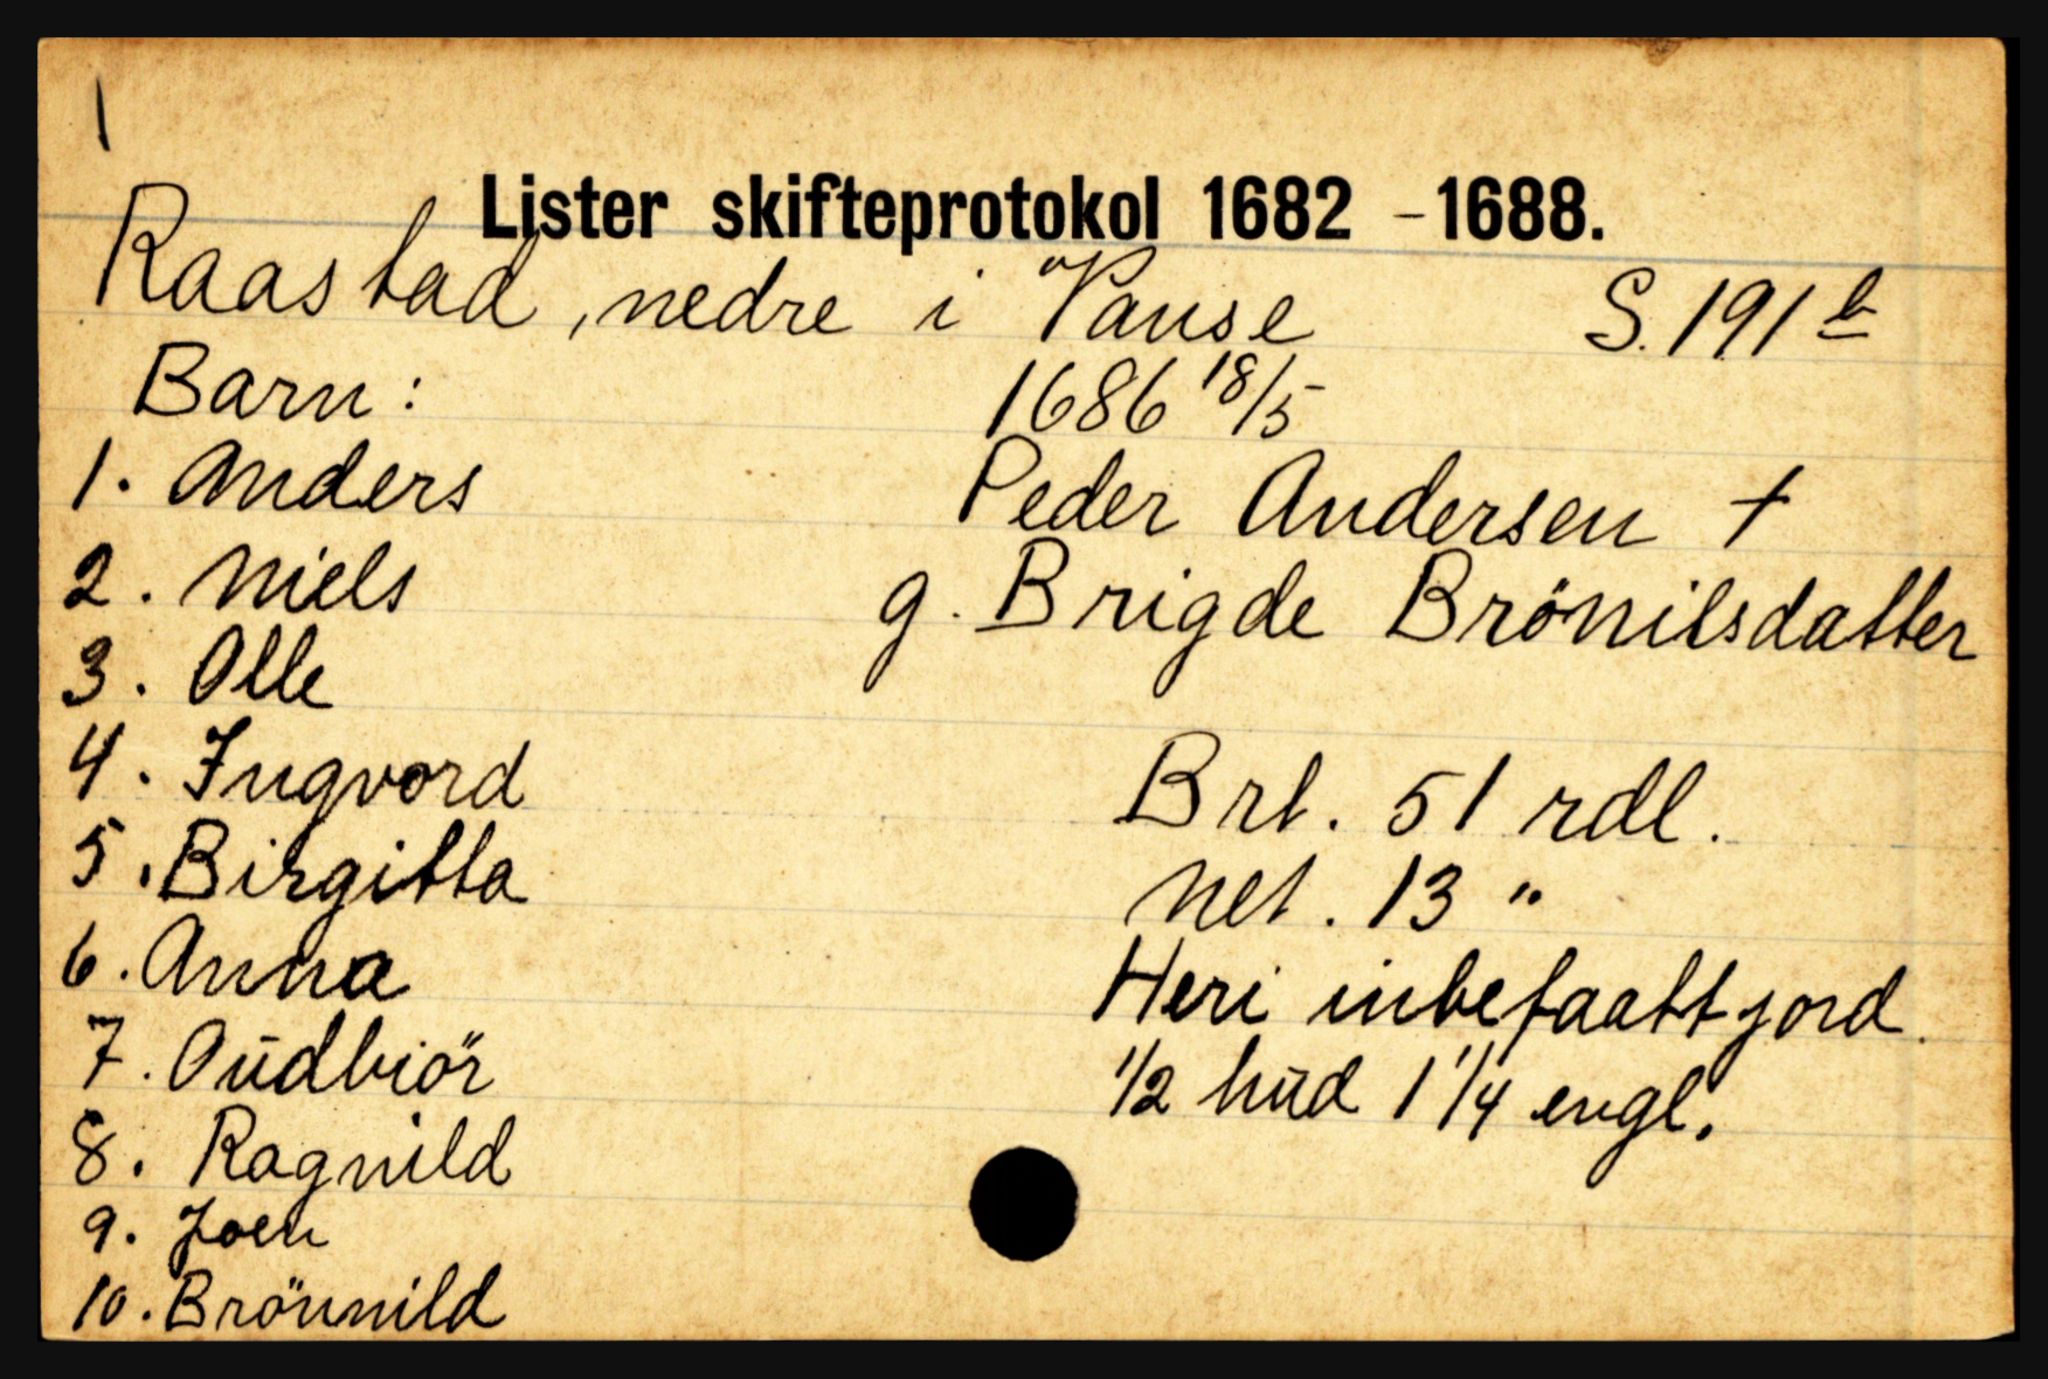 Lister skifteprotokol 1682 - 1688.
Raastad, nedre i Vanse S. 191 b
Barn: 1686 18/5
1. Anders Peder Andersen †
2. Niels g. Brigde Brönilsdatter
3. Olle
4. Ingvord Brt. 51 rdl.
5. Birgitta net. 13 "
6. Anna Heri inbefaatt jord.
7. Oudbiör 1/2 hud 1 1/4 engl.
8. Ragnild
9. Joen
10. Brönnild